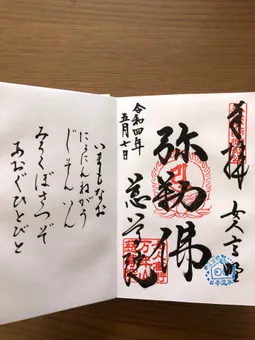 奉拝 女人高野
弥勒佛
令和四年
五月七日
慈尊院
いまもなお
にょにんねがう
じそんいん
みろくぼさつぞ
あおぐひとびと